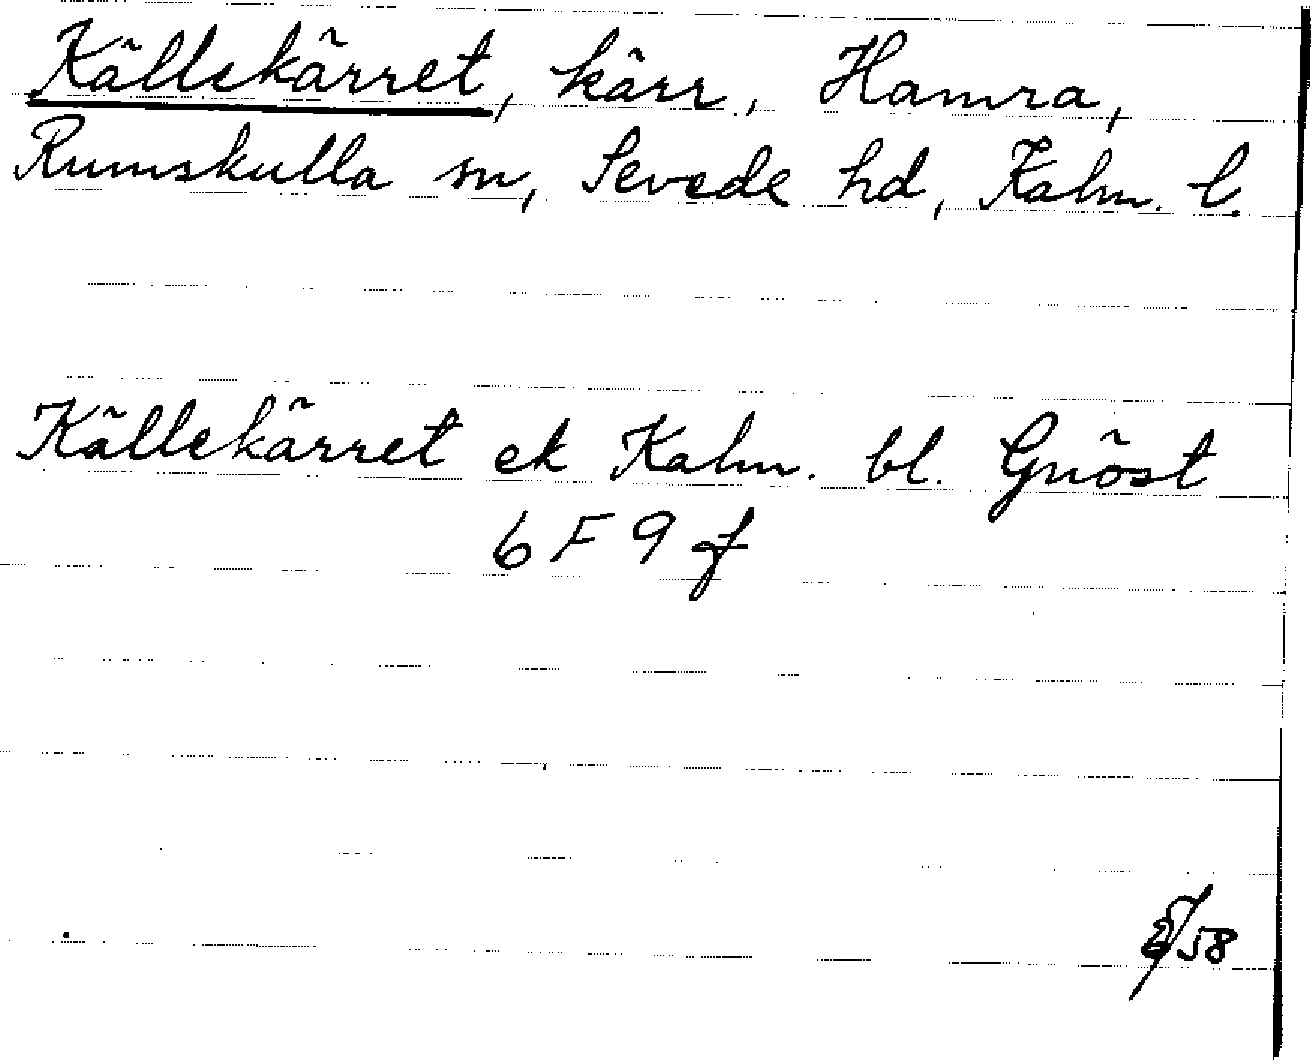 Källekärret, kärr, Hamra,
Rumskulla sn, Sevede hd, Kalm. l.
Källekärret ek Kalm. bl. Gnöst
6 F 9 f
/58